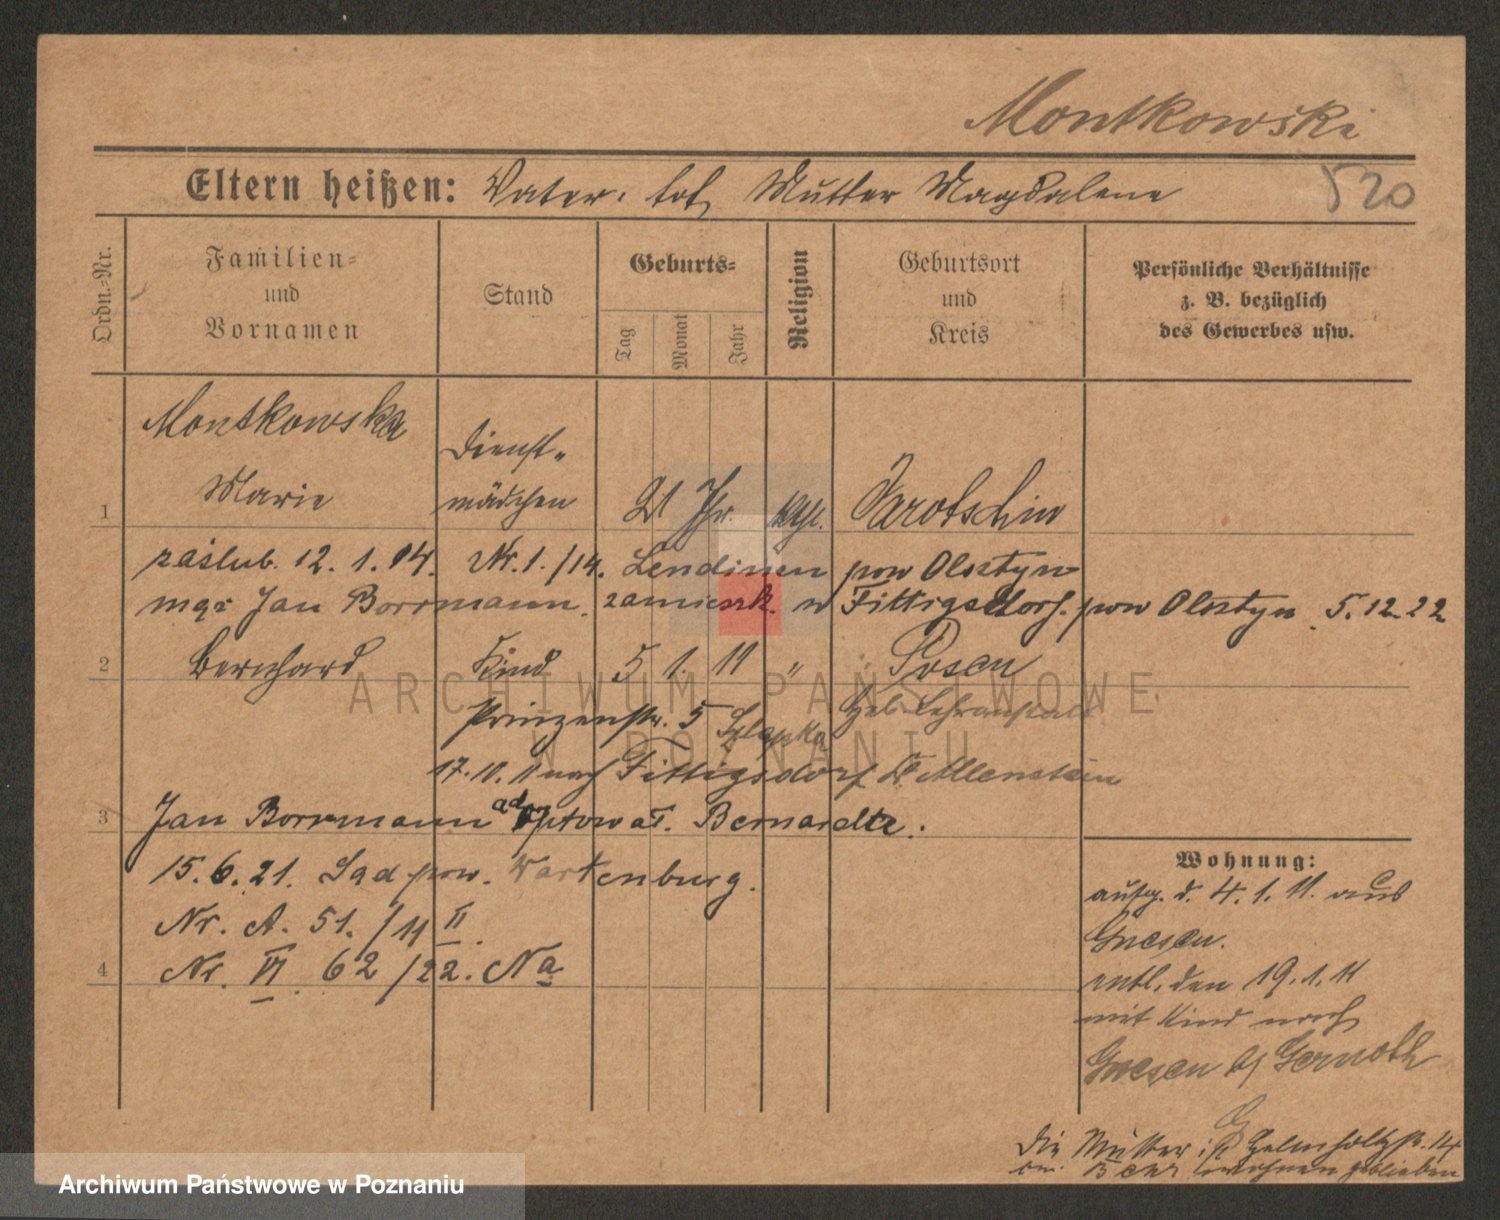 Montkowski
Eltern heißen: Vater: tot, Mutter Magdalene
520
Ordn.-Nr.
Familien-
und
Vornamen
Stand
Geburts-
Tag
Monat
Jahr
Religion
Geburtsort
und
Kreis
Persönliche Verhältnisse
z. B. bezüglich
des Gewerbes usw.
Montkowska
Dienst-
1 Marie mädchen 21 Jhr. kath. Jarotschin
zaślub. 12. 1. 14. Nr. 1./14. Lendinen pow Olsztyn
mąż Jan Borrmann. zamieszk. w Fittigsdorf. pow Olsztyn 5.12.22
2 Bernhard Kind 5 1. 11 " Posen
Prinzenstr. 5 Szlapka Heb. Lehranstalt
17.11.11 nach Fittigsdorf Kr Allenstein
3 Jan Borrmann adoptował. Bernardte.
15.6.21. Sąd pow. Wartenburg.
Nr. A. 51./14 II.
4 Nr. VI 62/22. Na
Wohnung:
aufg. d. 4.1.11. aus
Gnesen.
entl. den 19.1.11
mit Kind nach
Gnesen bei Gernoth
Die Mutter ist
wohnen geblieben
ARCHIWUM PAŃSTWOWE
W POZNANIU
Archiwum Państwowe w Poznaniu